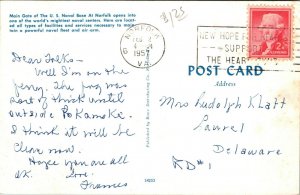 Main Gate of The U. S. Naval Base At Norfolk opens into
one of the world's mightiest naval centers. Here are located
all types of facilities and services necessary to maintain
a powerful naval fleet and air arm.
8/25
1957
VA.
NEW HOPE FOR
SUPPORT
THE HEART
2¢
Dear Folks
Well I'm on the
ferry. The fog was
sort of thick until
outside Pokomoke.
I think it will be
clear now.
Hope you are all
OK. Love.
Frances
POST CARD
Address
Mrs Rudolph Klatt
Laurel
Delaware
RD #1